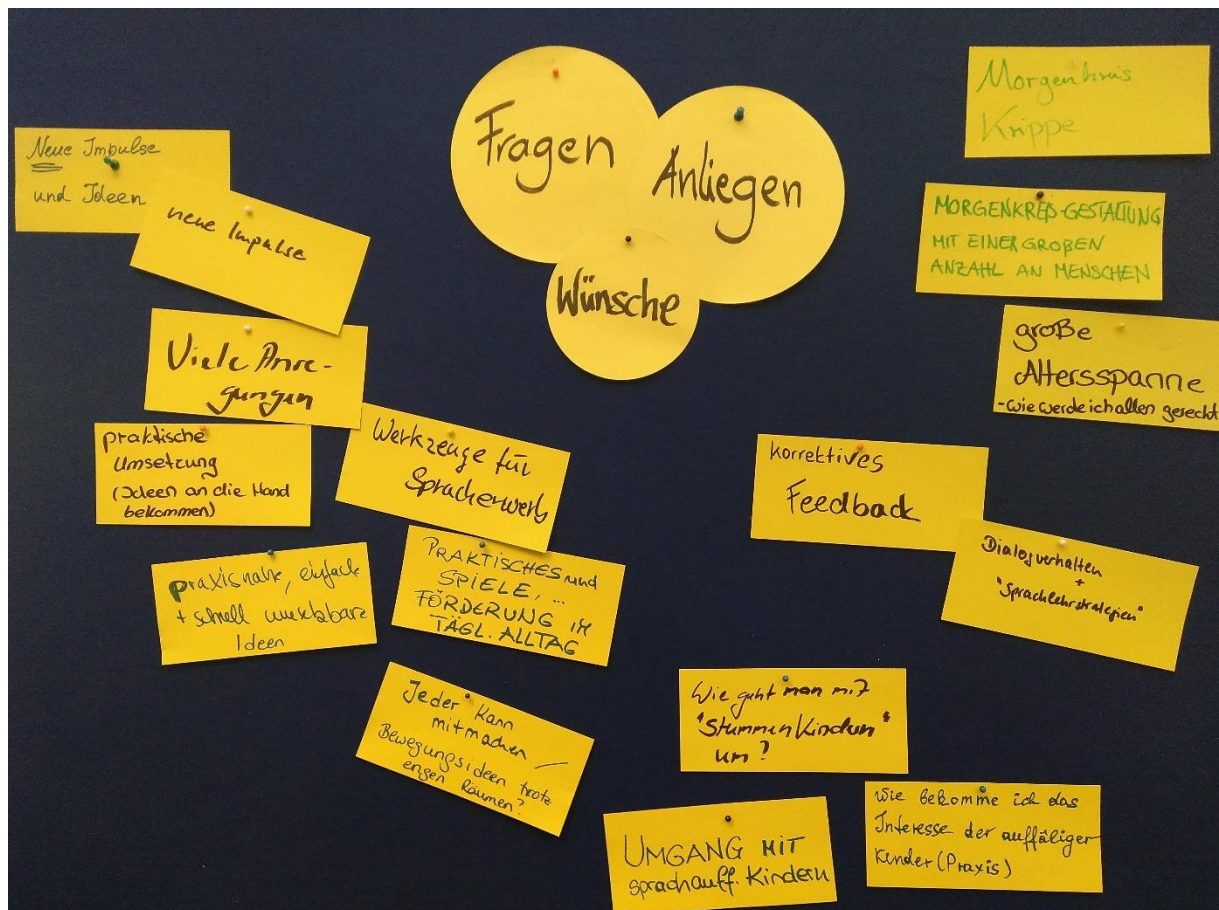 Fragen
Anliegen
Wünsche
Neue Impulse
und Ideen
neue Impulse
Viele Anre-
gungen
praktische
Umsetzung
(Ideen an die Hand
bekommen)
Werkzeuge für
Spracherwerb
praxisnahe, einfach
+ schnell umsetzbare
Ideen
PRAKTISCHES und
SPIELE, ...
FÖRDERUNG IM
TÄGL. ALLTAG
Jeder kann
mitmachen /
Bewegungsideen trotz
engen Räumen?
Morgenkreis
Krippe
MORGENKREIS-GESTALTUNG
MIT EINER GROßEN
ANZAHL AN MENSCHEN
große
Altersspanne
-wie werde ich allen gerecht
korrektives
Feedback
Dialogverhalten
+
"Sprachlehrstrategien"
Wie geht man mit
"Stummen Kindern"
um?
UMGANG MIT
sprachauff. Kindern
Wie bekomme ich das
Interesse der auffäliger
Kinder (Praxis)